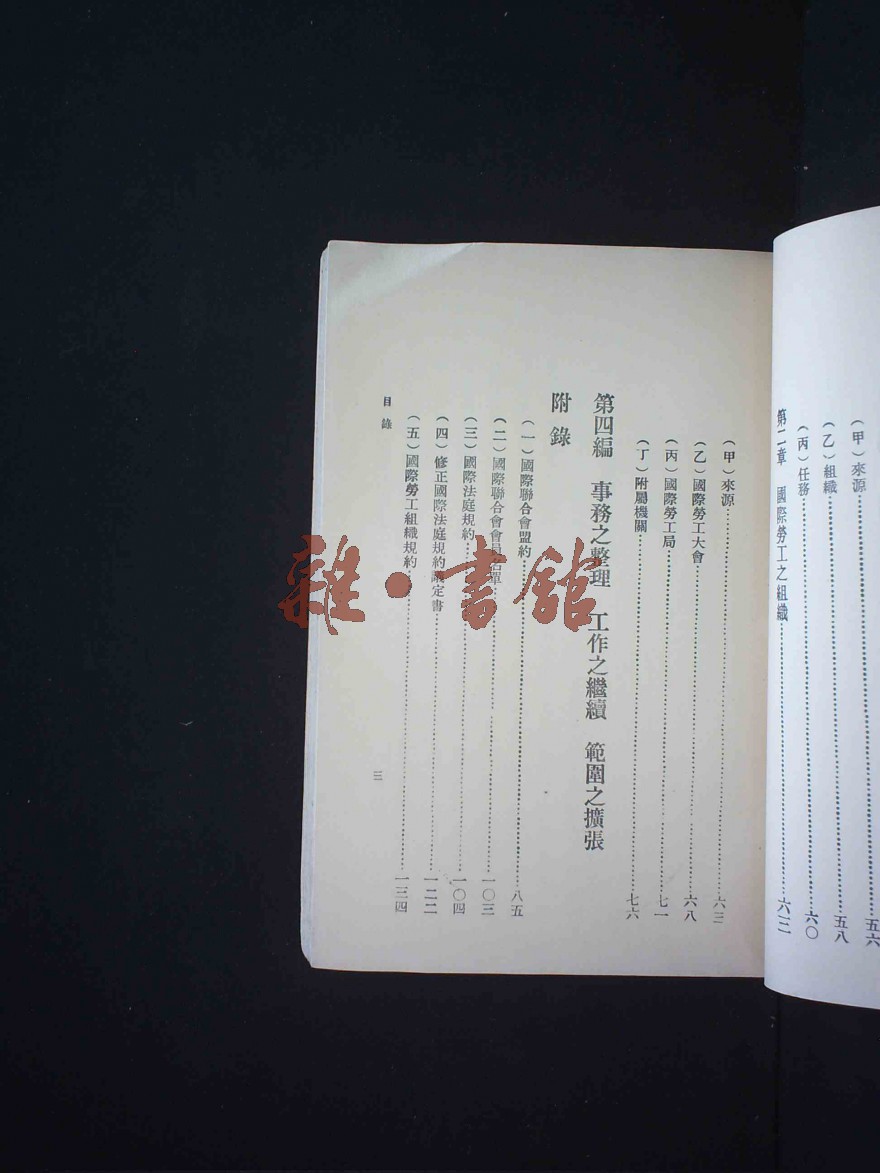 （甲）來源……五六
（乙）組織……五八
（丙）任務……六〇
第二章　國際勞工之組織……六三
（甲）來源……六三
（乙）國際勞工大會……六八
（丙）國際勞工局……七一
（丁）附屬機關……七六
第四編　事務之整理　工作之繼續　範圍之擴張
附錄
（一）國際聯合會盟約……八五
（二）國際聯合會會員名單……一〇三
（三）國際法庭規約……一〇四
（四）修正國際法庭規約議定書……一二二
（五）國際勞工組織規約……一三四
目錄
三
雜·書館